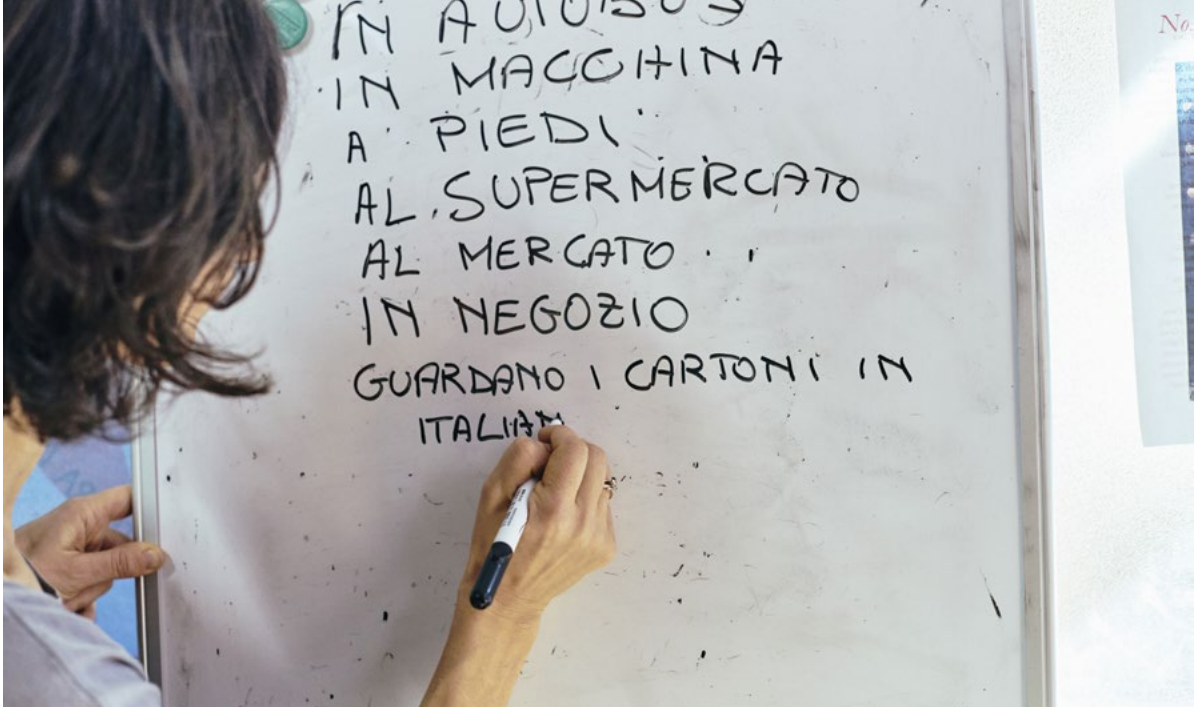 IN AUTOBUS
IN MACCHINA
A PIEDI
AL SUPERMERCATO
AL MERCATO
IN NEGOZIO
GUARDANO I CARTONI IN
ITALIAN
No.